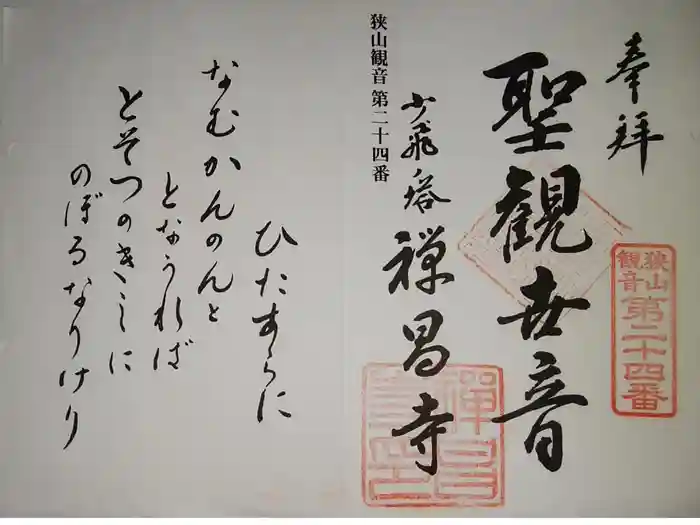 奉拝
狭山
観音
第二十四番
聖観世音
少飛塔 禅昌寺
禅昌
狭山観音 第二十四番
ひたすらに
なむかんのんと
となうれば
とそつのきしに
のぼるなりけり